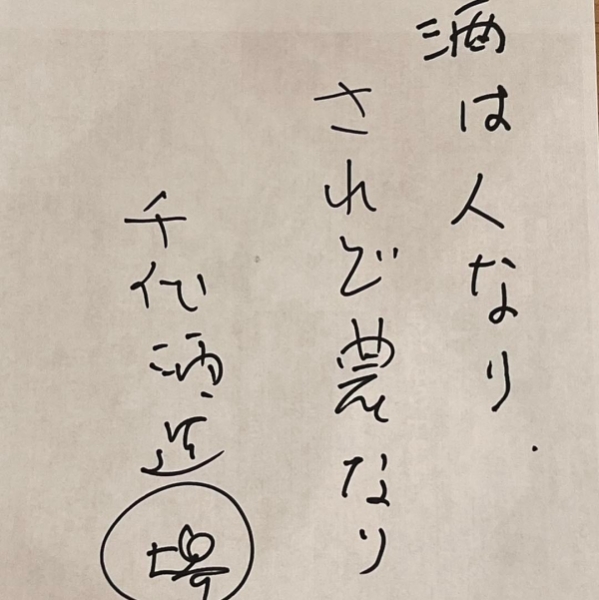 酒は人なり.
されど農なり
千代酒造